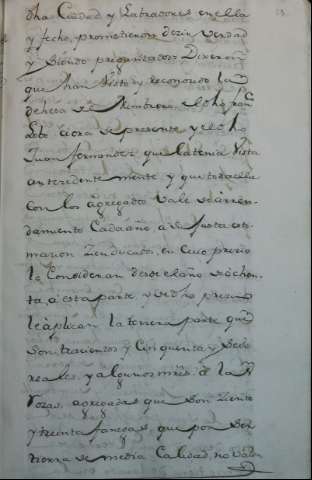 dha Ciudad y Labradores en ella
y fecho, prometieron decir verdad
y siendo preguntados Dixeron
que han visto y reconocido la
dehesa de Membrera, el dho fran.co
Soto aora de presente y el dho
Juan fernandez que la tenia Vista
anteredente mente, y que toda ella
con los agregados Vale de arren-
damiento Cada año, a su justa esti-
macion ducados, en Cuio precio
la Consideran desde el año de ochen-
ta a esta parte, y de dho precio
le aplican la tercera parte que
son trescientos y Cinquenta y
reales, y algunos mrs. a la
Rozas agregadas que son Ziento
y treinta fanegas, que por ser
tierra de media Calidad, no Valen